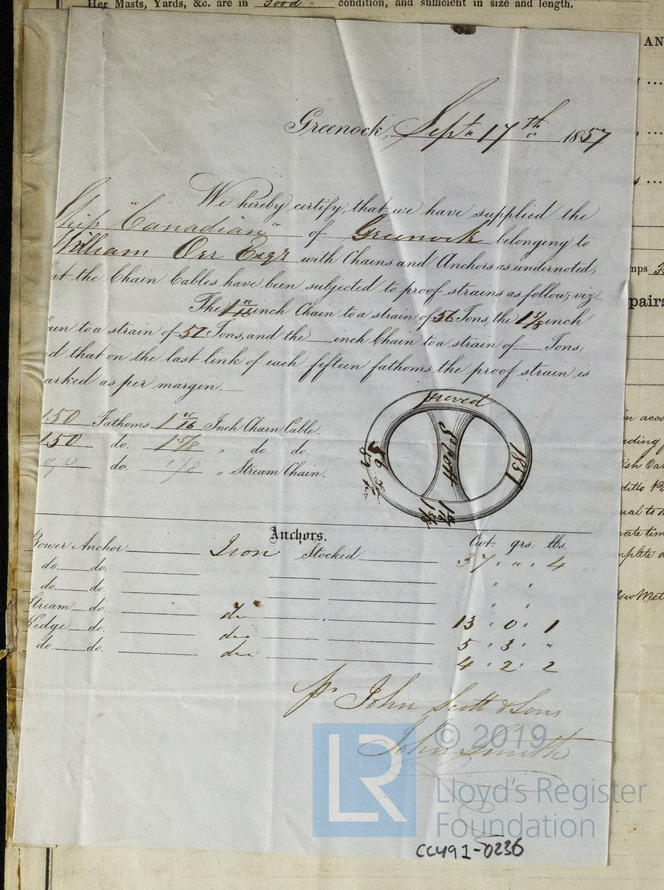 Her Masts, Yards, &c. are in Good condition, and sufficient in size and length.
Greenock, Septr 17th 1857
We hereby certify, that we have supplied the
Ship "Canadian" of Greenock belonging to
William Orr Esqr with Chains and Anchors as undernoted,
at the Chain Cables have been subjected to proof strains as follow; viz.
The inch Chain to a strain of 56 Tons, the 1 5/8 inch
ain to a strain of 57 Tons, and the inch Chain to a strain of Tons;
d that on the last link of each fifteen fathoms the proof strain is
arked as per margin.
proved
Scott
1857
150 Fathoms 1 11/16 Inch Chain Cable.
150 do. 1 5/8 " do. do.
90 do. " Stream Chain.
Anchors.
Cwt. qrs. lbs.
Bower Anchor Iron Stocked 4
do. do.
do. do.
Stream do. do 13 " 0 " 1
Kedge do. do 5 " 3 "
do. do. do 4 " 2 " 2
pr John Scott & Sons
John Smith
© 2019
LR
Lloyd's Register
Foundation
CC491-0236
AN
pairs